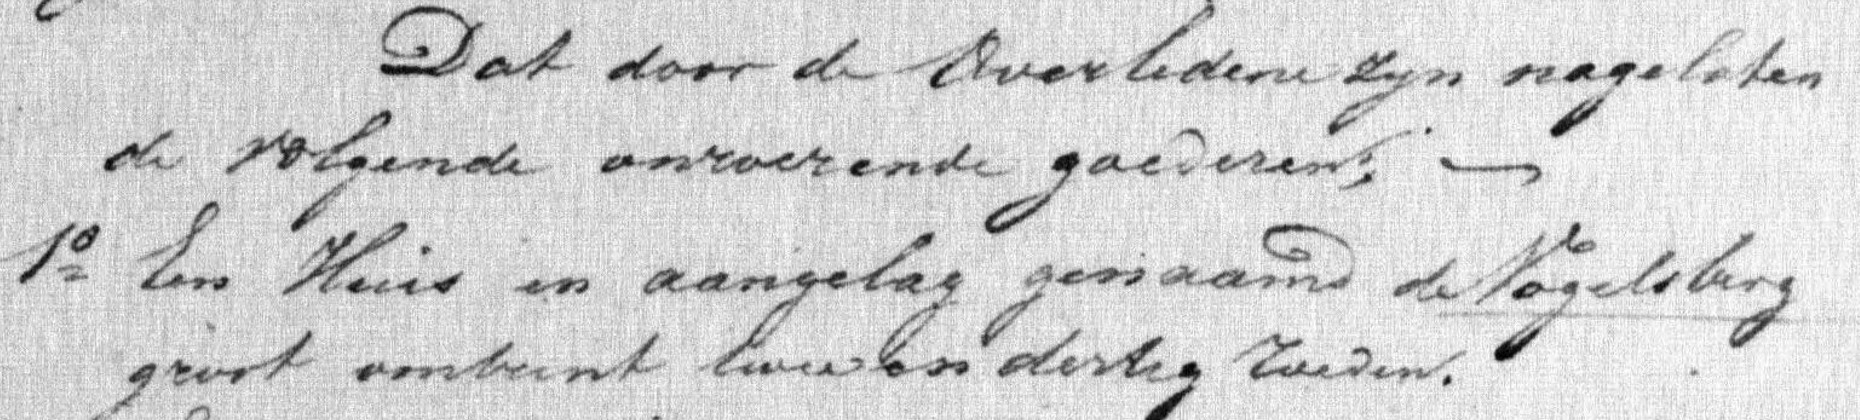 Dat door de Overledene zyn nagelaten
de volgende onroerende goederen; —
1º Een Huis en aangelag genaamd de Vogelsberg
groot omtrent twee en dertig roeden.